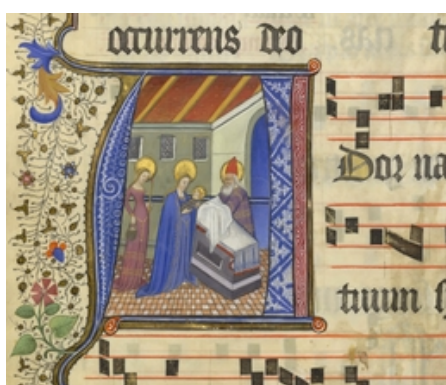 occurrens deo
A
Dor na
tuum